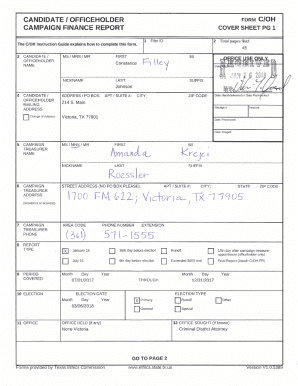 CANDIDATE / OFFICEHOLDER
CAMPAIGN FINANCE REPORT
FORM C/OH
COVER SHEET PG 1
The C/OH Instruction Guide explains how to complete this form.
1 Filer ID
2 Total pages filed:
45
3 CANDIDATE / OFFICEHOLDER NAME
MS / MRS / MR
FIRST
MI
Constance Filley
NICKNAME
LAST
SUFFIX
Johnson
OFFICE USE ONLY
JAN 16 2018
4 CANDIDATE / OFFICEHOLDER MAILING ADDRESS
Change of Address
ADDRESS / PO BOX; APT / SUITE #; CITY; ZIP CODE
214 S. Main
Victoria, TX 77901
Receipt #
Amount
Date Processed
Date Imaged
5 CAMPAIGN TREASURER NAME
MS / MRS / MR
FIRST
MI
Amanda Krejci
NICKNAME
LAST
SUFFIX
Roessler
6 CAMPAIGN TREASURER ADDRESS
STREET ADDRESS (NO PO BOX PLEASE); APT / SUITE #; CITY; STATE; ZIP CODE
1700 FM 622; Victoria, TX 77905
7 CAMPAIGN TREASURER PHONE
AREA CODE
PHONE NUMBER
EXTENSION
(361) 571-1555
8 REPORT TYPE
x January 15
30th day before election
Runoff
15th day after campaign treasurer appointment (officeholder only)
July 15
8th day before election
Exceeded $500 limit
Final Report (Attach C/OH-FR)
9 PERIOD COVERED
Month Day Year
07/01/2017
THROUGH
Month Day Year
12/31/2017
10 ELECTION
ELECTION DATE
Month Day Year
03/06/2018
ELECTION TYPE
x Primary
Runoff
Other
General
Special
11 OFFICE
OFFICE HELD (if any)
None Victoria
12 OFFICE SOUGHT (if known)
Criminal District Attorney
GO TO PAGE 2
Forms provided by Texas Ethics Commission
www.ethics.state.tx.us